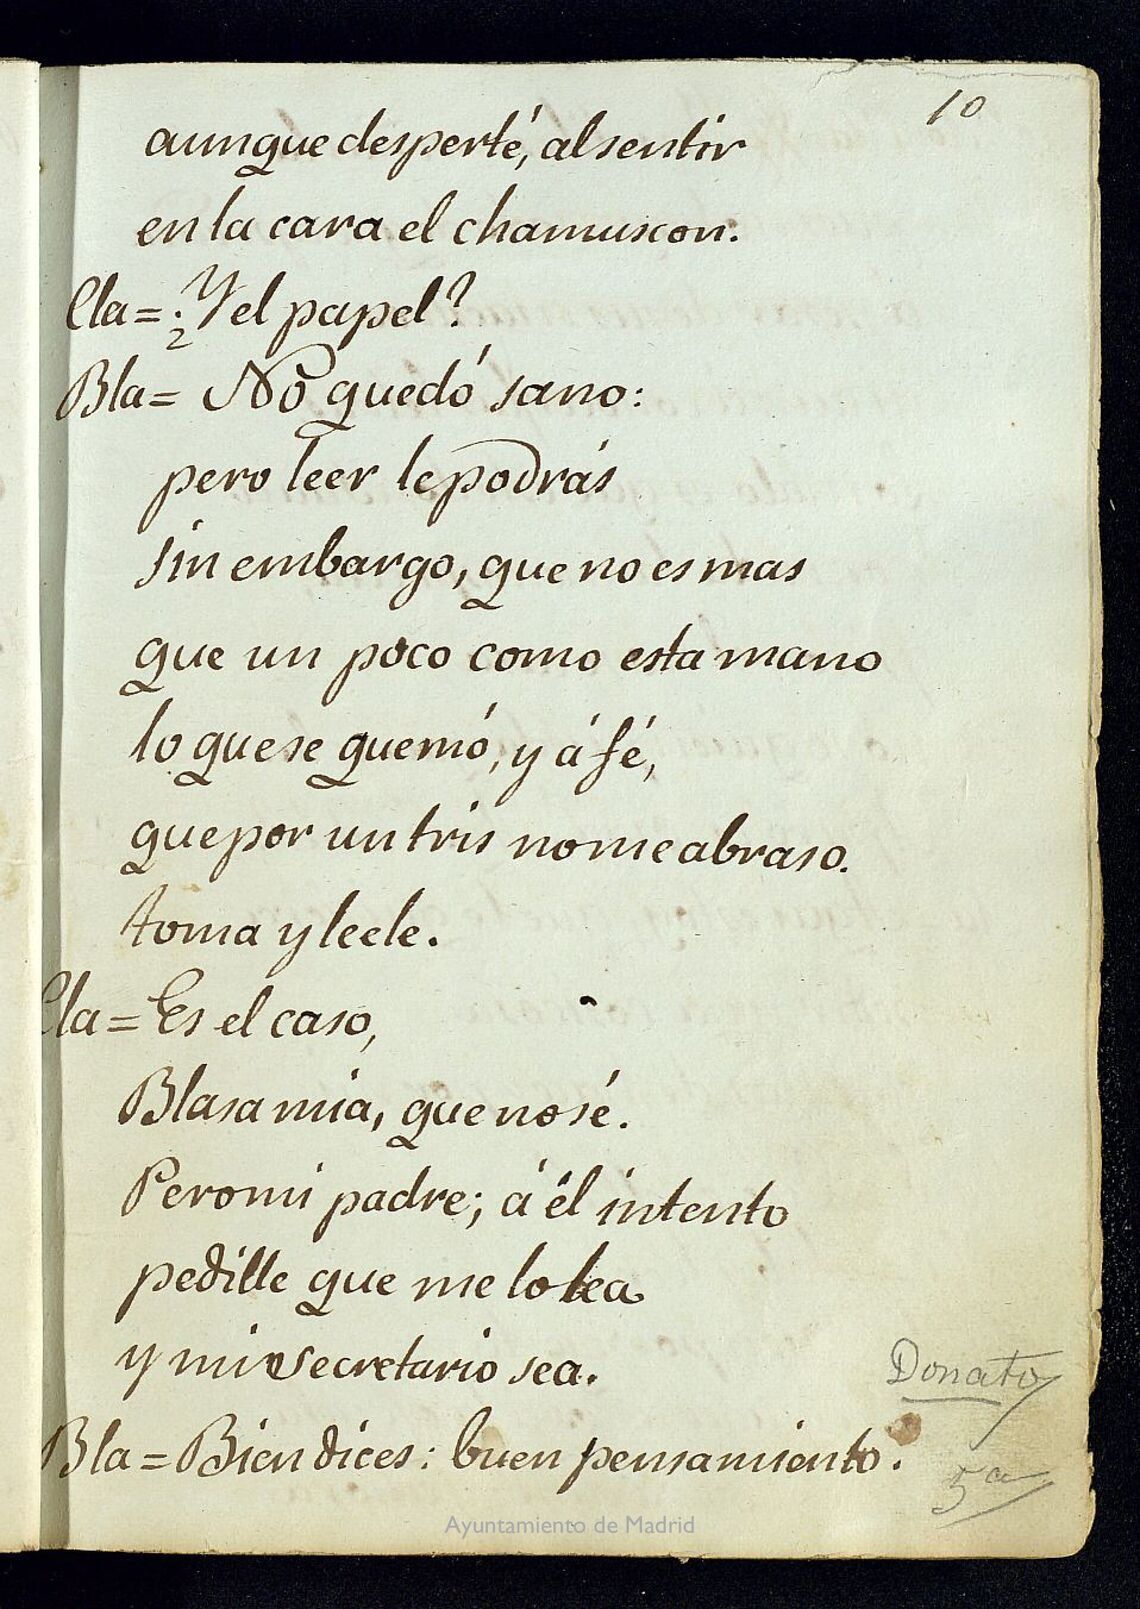 10
aunque desperté, al sentir
en la cara el chamuscon.
Cla = ¿Y el papel?
Bla = No quedó sano:
pero leer le podrás
sin embargo, que no es mas
que un poco como esta mano
lo que se quemó, y á fé,
que por un tris no me abraso.
toma y leele.
Cla = Es el caso,
Blasa mia, que no sé.
Pero mi padre; á él intento
pedille que me lo lea
y mi secretario sea.
Donato
Bla = Bien dices: buen pensamiento.
5a
Ayuntamiento de Madrid